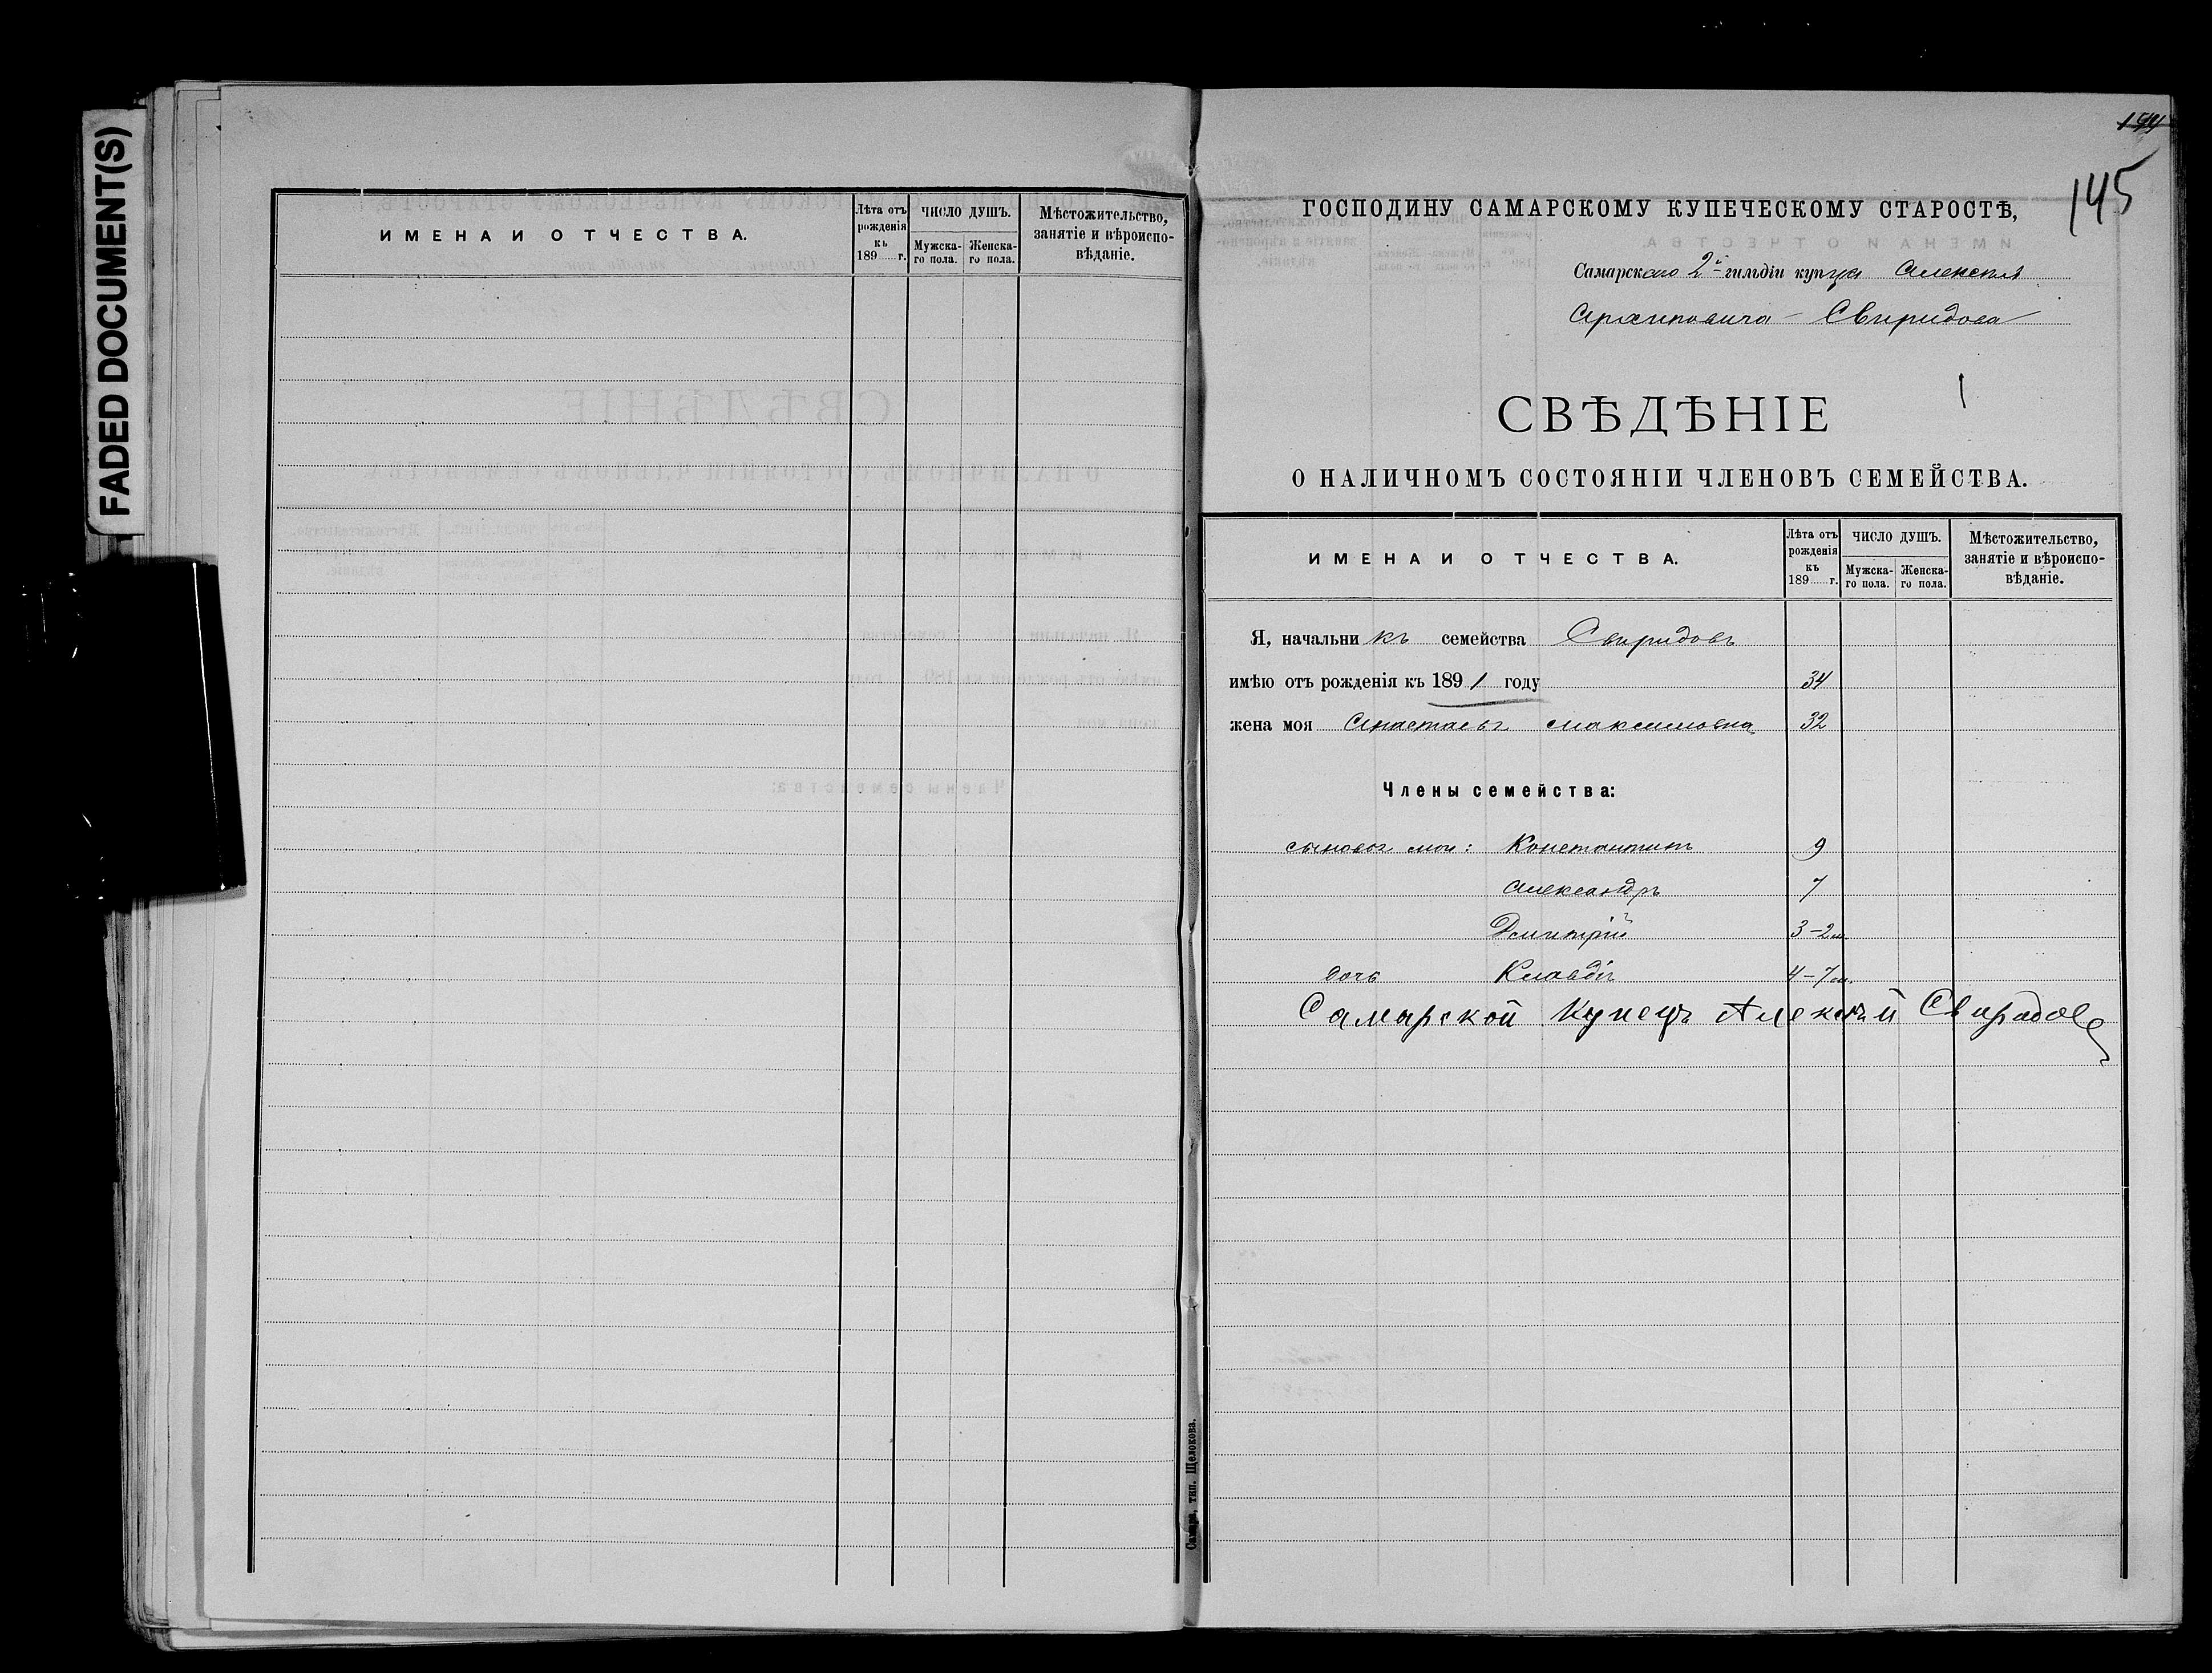 FADED DOCUMENT(S)
ИМЕНА И ОТЧЕСТВА.
Лѣта отъ рожденія къ 189 г.
ЧИСЛО ДУШЪ.
Мужска-го пола.
Женска-го пола.
Мѣстожительство, занятіе и вѣроиспо-вѣданіе.
Самара, тип. Щелокова.
144
145
ГОСПОДИНУ САМАРСКОМУ КУПЕЧЕСКОМУ СТАРОСТѢ,
Самарскаго 2й гильдіи купца Алексѣя
Архиповича Свиридова
СВѢДѢНІЕ
О НАЛИЧНОМЪ СОСТОЯНІИ ЧЛЕНОВЪ СЕМЕЙСТВА.
ИМЕНА И ОТЧЕСТВА.
Лѣта отъ рожденія къ 189 г.
ЧИСЛО ДУШЪ.
Мужска-го пола.
Женска-го пола.
Мѣстожительство, занятіе и вѣроиспо-вѣданіе.
Я, начальникъ семейства Свиридовъ
имѣю отъ рожденія къ 1891 году 34
жена моя Анастасья Максимовна 32
Члены семейства:
сыновья мои: Константинъ 9
Александръ 7
Дмитрій 3-2 м.
дочь Клавдія 4-7 м.
Самарской Купецъ Алексѣй Свиридов